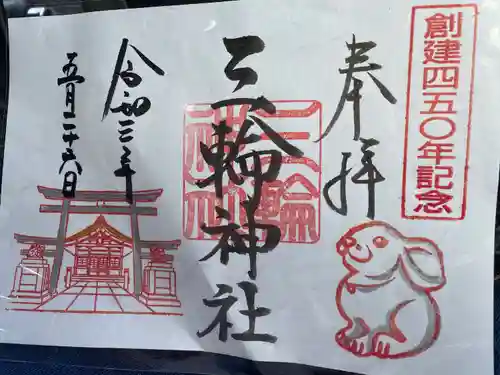 創建四五〇年記念
奉拝
三輪神社
三輪
神社
令和三年
五月二十六日